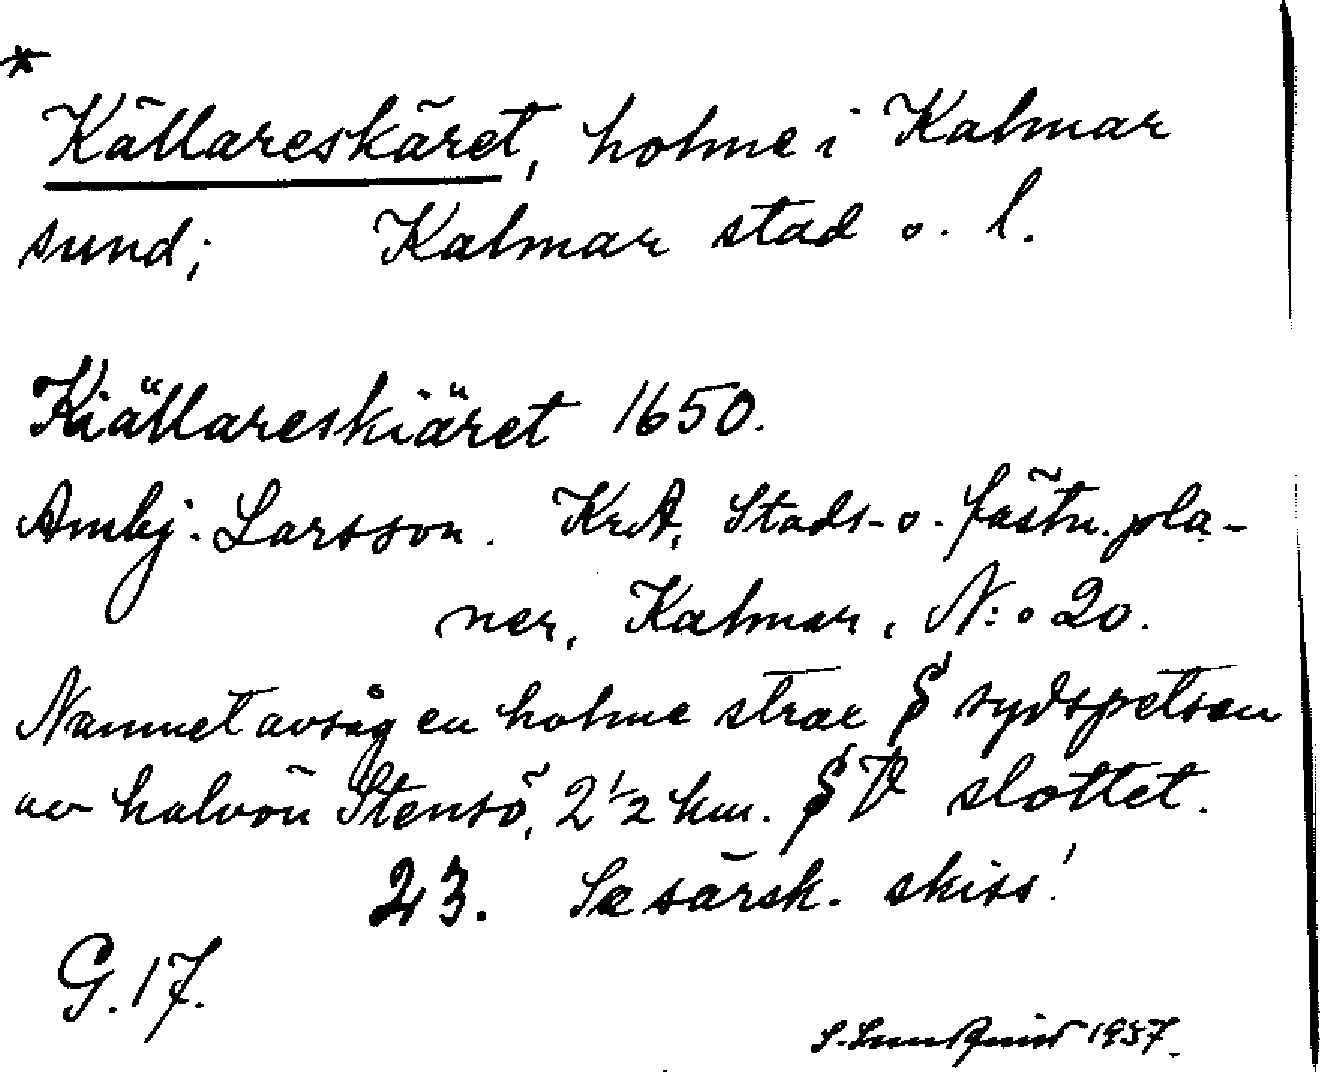 *
Källareskäret, holme i Kalmar
sund; Kalmar stad o. l.
Kiällareskiäret 1650.
Ambj. Larsson. KrA, Stads- o. fästn. pla-
ner, Kalmar, N:o 20.
Namnet avsåg en holme strax S sydspetsen
av halvön Stensö, 2 1/2 km. SV slottet.
23. Se särsk. skiss!
G. 17.
S. Lundquist 1937.